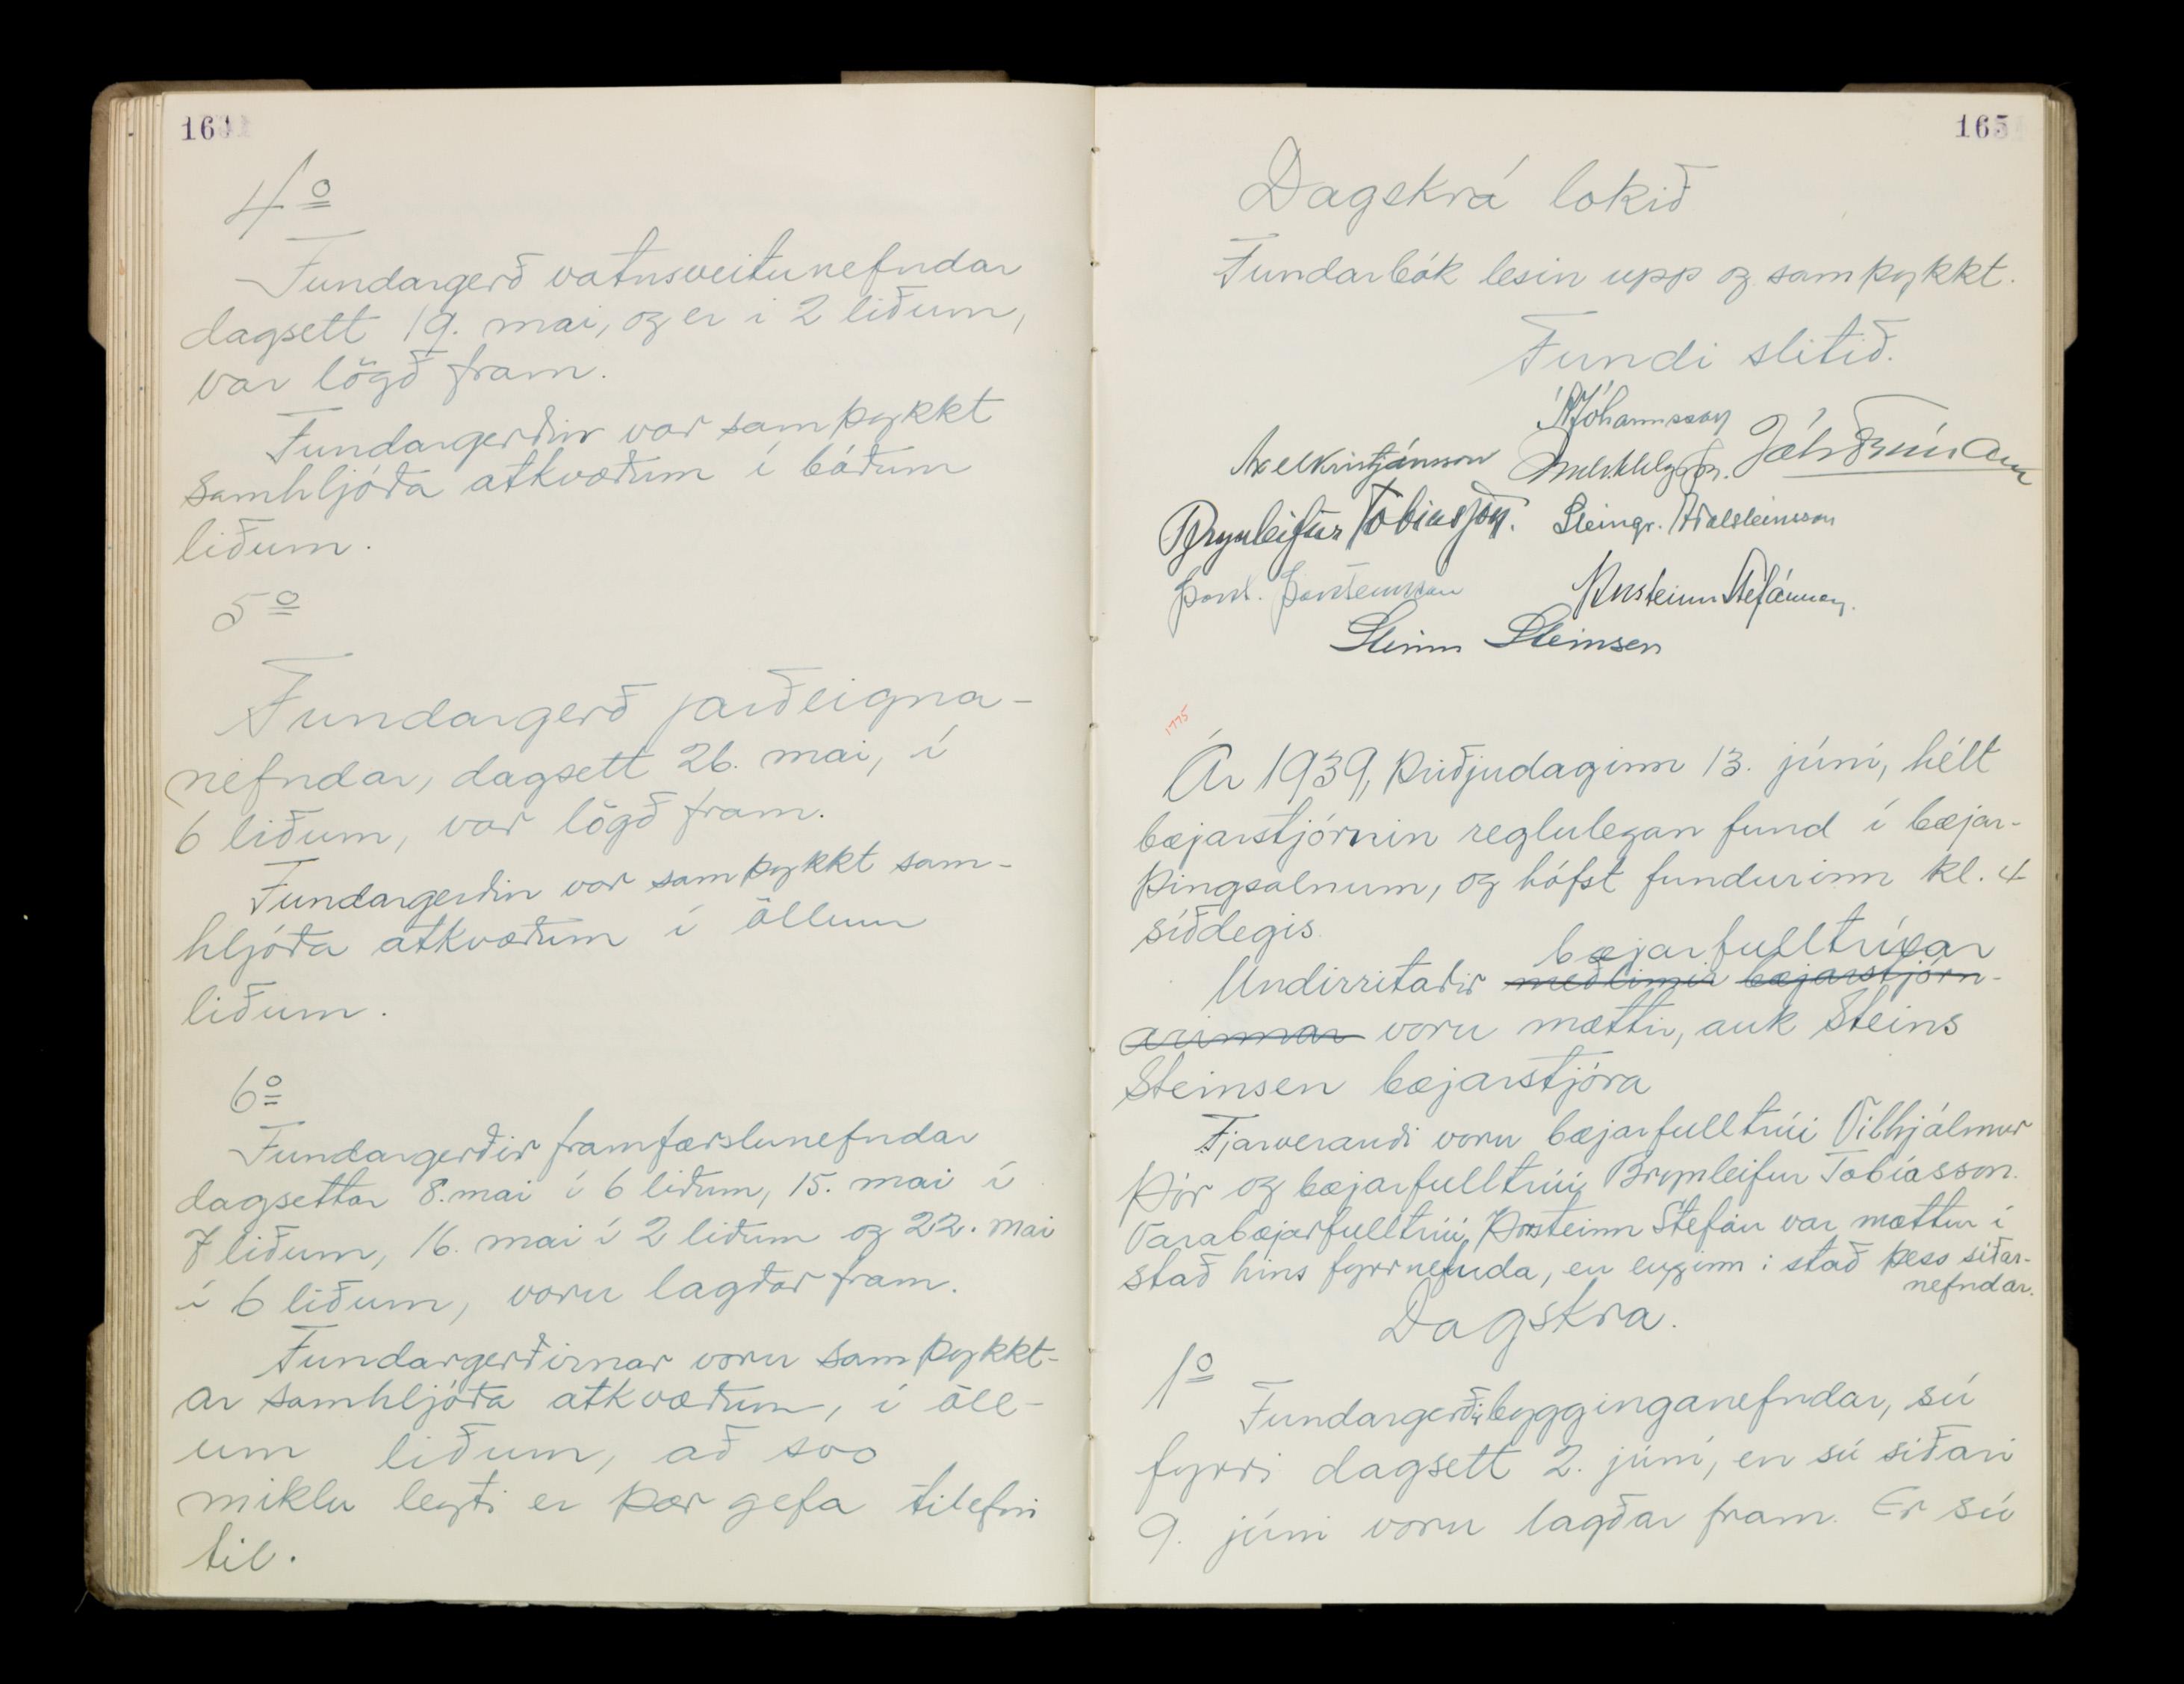 164
4º
Fundargerð vatnsveitunefndar
dagsett 19. mai, og er i 2 liðum,
var lögð fram.
Fundargerðin var samþykkt
samhljóða atkvæðum í báðum
liðum.
5º
Fundargerð jarðeigna-
nefndar, dagsett 26. mai, í
6 liðum, var lögð fram.
Fundargerðin var samþykkt sam-
hljóða atkvæðum í öllum
liðum.
6º
Fundargerðir framfærslunefndar
dagsettar 8. mai í 6 liðum, 15. mai í
7 liðum, 16. mai í 2 liðum og 22. mai
í 6 liðum, voru lagðar fram.
Fundargerðirnar voru samþykkt-
ar samhljóða atkvæðum, í öll-
um liðum, að svo
miklu leyti er þær gefa tilefni
til.
165
Dagskrá lokið
Fundarbók lesin upp og samþykkt.
Fundi slitið.
Jóhannsson
Axel Kristjánsson
Brynleifur Tobiasson. Steingr. Aðalsteinsson
Þorst. Þorsteinsson Þorsteinn Stefánsson.
Steinn Steinsen
1775
Ár 1939, þriðjudaginn 13. júní, hélt
bæjarstjórnin reglulegan fund í bæjar-
þingsalnum, og hófst fundurinn kl. 4
síðdegis.
bæjarfulltrúar
Undirritaðir meðlimir bæjarstjórn-
arinnar voru mættir, auk Steins
Steinsen bæjarstjóra
Fjarverandi voru bæjarfulltrúi Vilhjálmur
Þór og bæjarfulltrúi Brynleifur Tobíasson.
Varabæjarfulltrúi Þorsteinn Stefán var mættur í
stað hins fyrrnefnda, en enginn í stað þess síðar-
nefndar.
Dagskra.
1º
Fundargerðir bygginganefndar, sú
fyrri dagsett 2. júní, en sú síðari
9. júní voru lagðar fram. Er sú